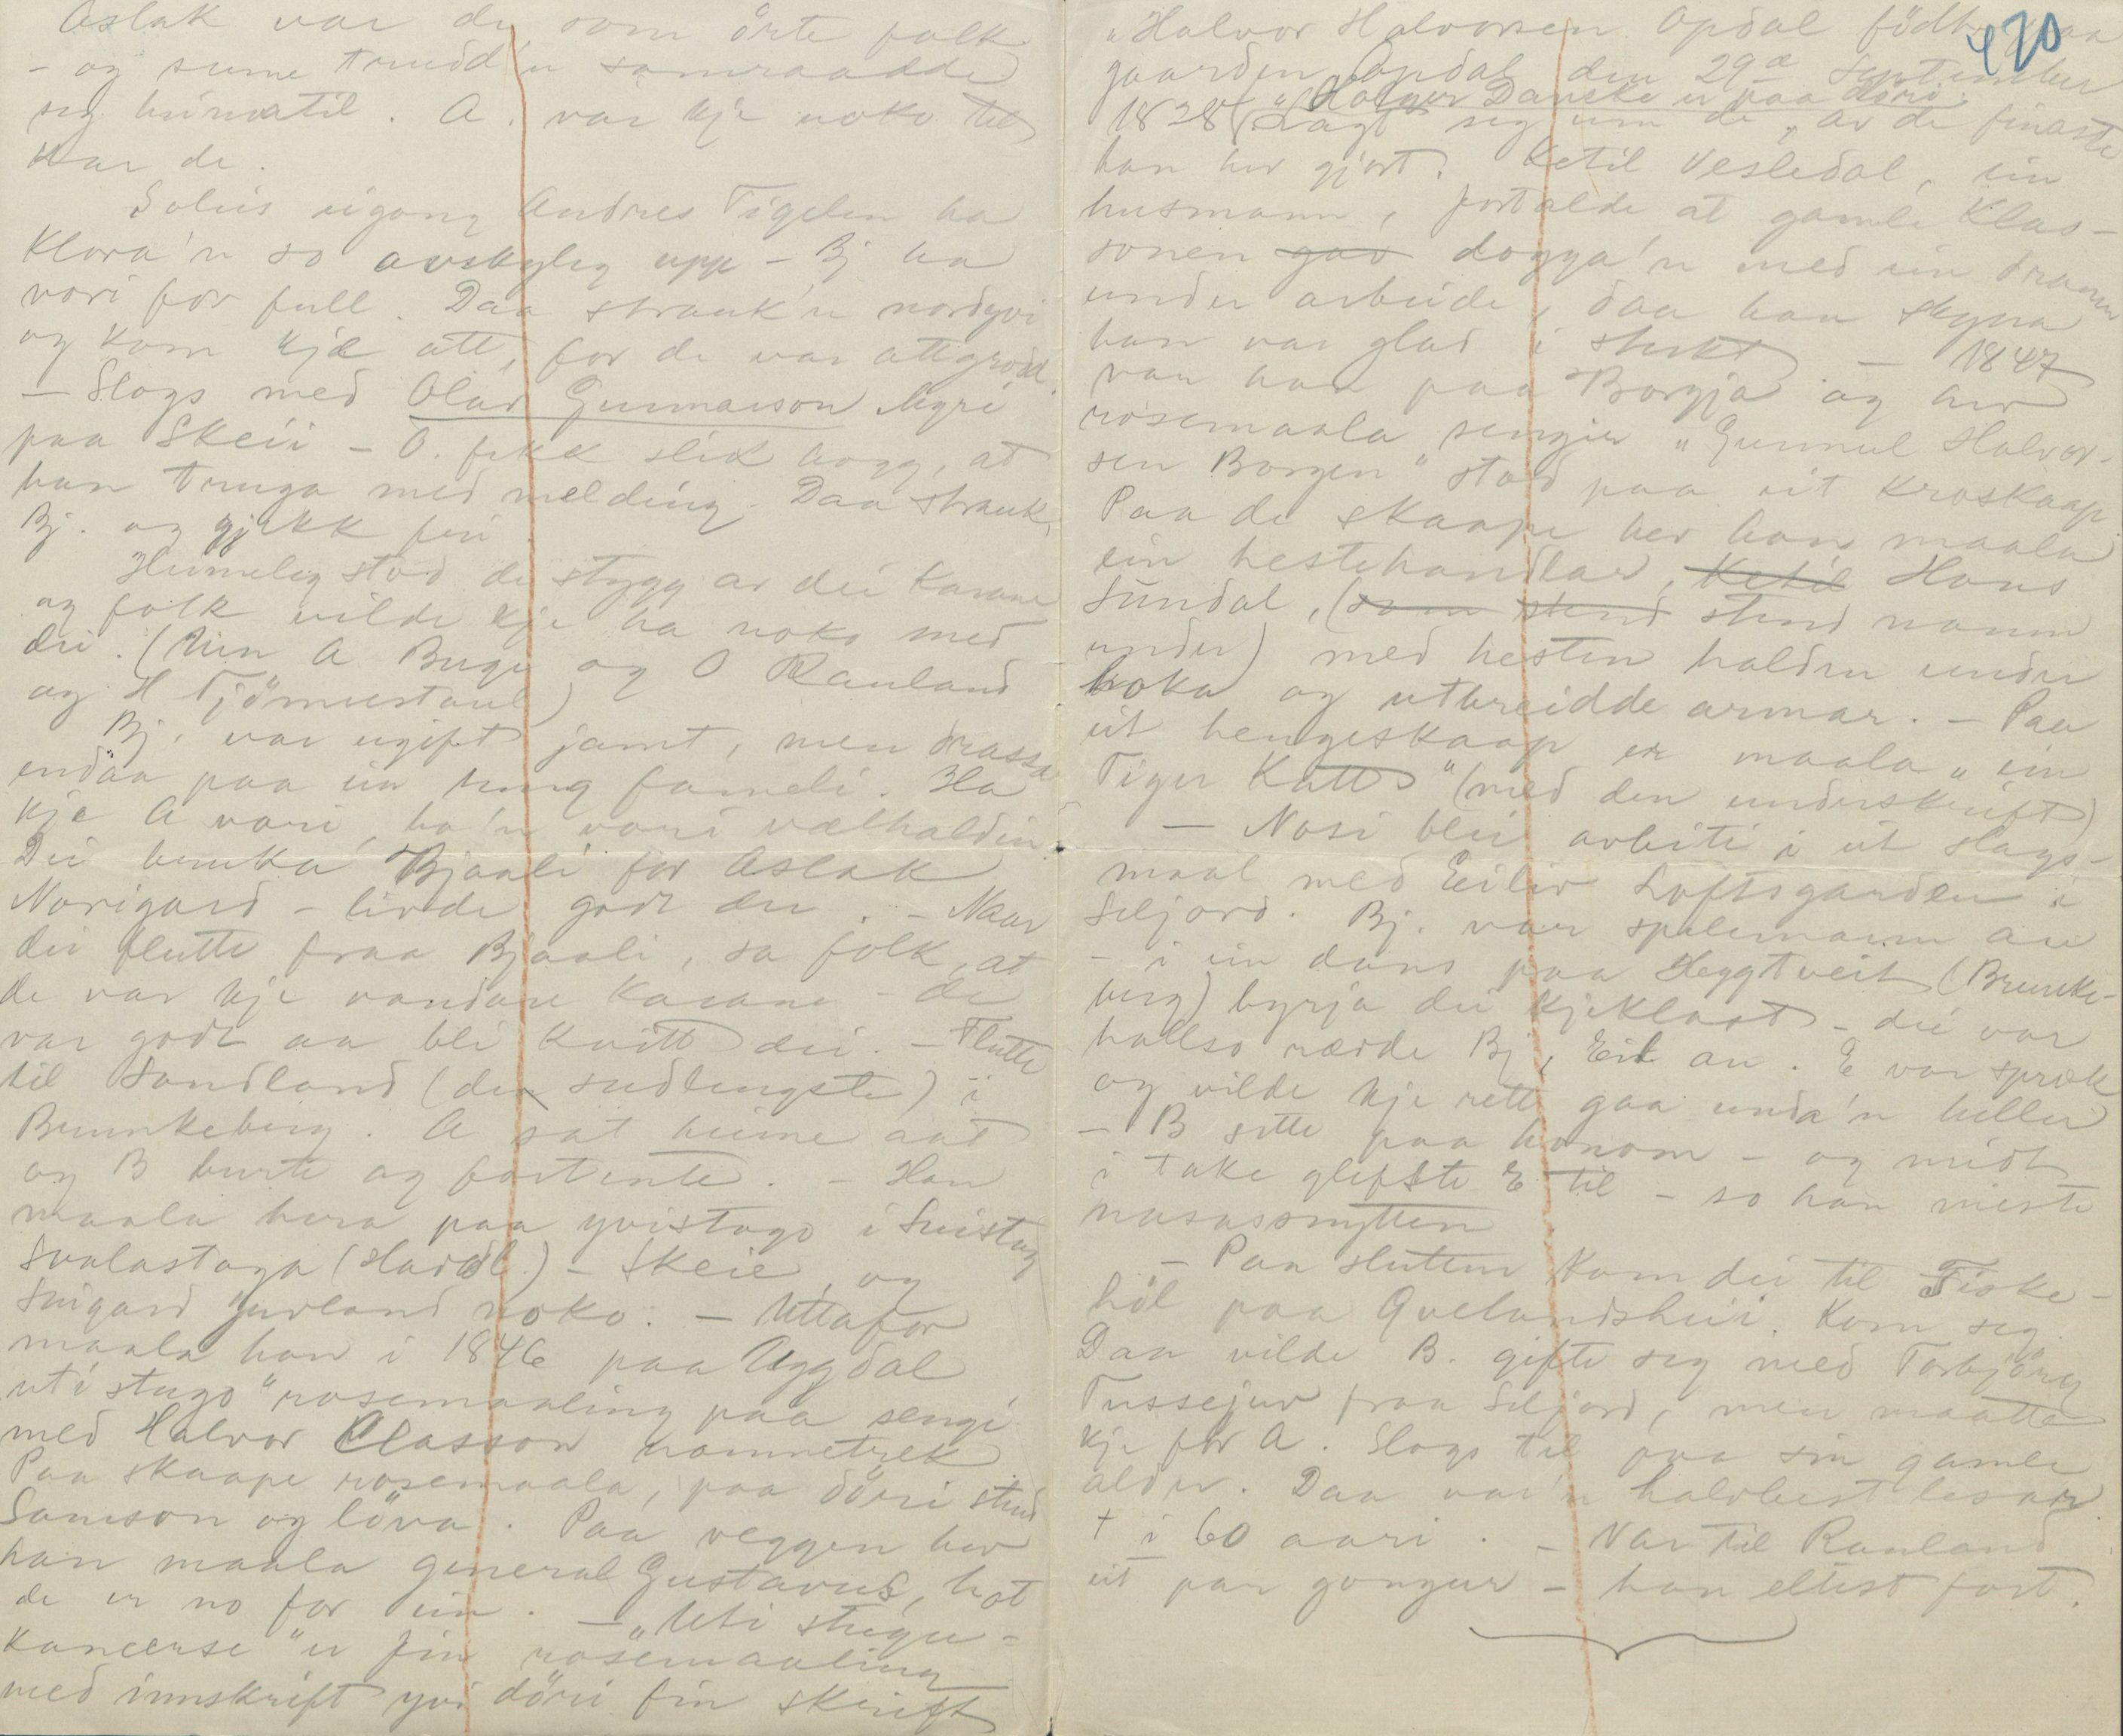 Aslak var de som örte folk
- og sume trudd'n samraadde
seg heimatil. A. var kje noko til
kar de.
Soleis eigong Andres Tigelen ha
klora'n so avskyleg upp - Bj ha
vori for full. Daa strauk'n nordyvi
og kom kje att, for de var attgrodd.
- Slogs med Olav Gunnarson Negri
paa Skeii - O. fekk slik hogg, at
han truga med melding. Daa strauk
Bj. og gjekk fri.
Heimeleg stod de stygg av dei karane
og folk vilde kje ha noko med
dei. (Min A Bugi og O Rauland
og H Tjönnestaul)
Bj. var ugift jamt, men drassa
endaa paa ein tung fameli. Ha
kje A vori, ha'n vori velhaldin.
Dei bruka Bjaali for Aslak
Norigard - livde godt der. - Naar
dei flutte fraa Bjaali, sa folk, at
de var kje vandare karane - de
var godt aa bli kvitt dei. - Flutte
til Sandland (den sudlengste) i
Brunkeberg. A sat heime aat
og B burte og fortente. - Han
maala bera paa yvistogo i Suistog
Svalastoga (Hardl.) - Skeie, og
Suigard Jurland noko. - Uttafor
maala han i 1846 paa Uggdal
"uti stugo" rosemaaling paa sengi
med Halvor Classon namnetrek
Paa skaape rosemaala, paa döri stend
Samson og löva. Paa veggen hev
han maala general Gustavus, hot
de er no for ein. - "Uti stugu=
kaneerse" er fin rosemaaling
med innskrift yvi döri fin skrift
"Halvor Halvorsen Opdal födt paa 420
gaarden Opdal den 29de September
"Holger Danske er paa döri.
1828 (Sagt seg um de, "av de finaste
han hev gjort. Ketil Vesledal, ein
husmann, fortalde at gamle Klas-
sonen gav dogga'n med ein dram
under arbeide, daa han skyna
han var glad i sterkt - 1847
var han paa Borgja og hev
rosemaala sengjer "Gunnul Halvor-
sen Borgen" stod paa eit kroskaap
Paa de skaape hev han maala
ein hestehandlar, Ketil Hans
Sundal, (som stend stend namn
under) med hesten halden under
hoka og utbreidde armar. - Paa
eit hengeskaap er maala "ein
Tiger Katt" (med den underskrift)
- Nosi blei avbiti i eit slags-
maal med Eiliv Loftsgarden i
Seljord. Bj. var spelemann au
- i ein dans paa Heggtveit (Brunke-
berg) byrja dei kjeklast - dei var
hallso rædde Bj, Eil au. E var spræk
og vilde kje rett gaa unda'n heller
- B sette paa honom - og midt
i take glefste E til - so han miste
nasasnytten
- Paa sluten kom dei til Fiske-
höl paa Qvelandsheii. Kom seg.
Daa vilde B. gifte seg med Torbjörg
Tussejuv fraa Seljord, men maatte
kje for A. Slogs til paa sin gamle
alder. Daa va'n halvbest lesar
+ i 60 aari. - Var til Rauland
eit par gonger - han eltest fort.